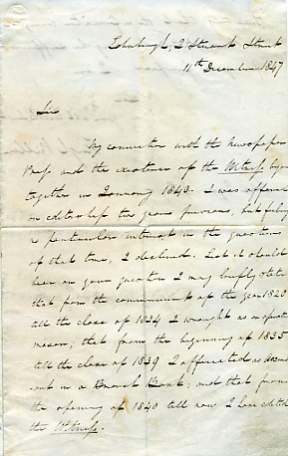 Edinburgh, 2 Stuart Street
11th December 1847
Sir
My connection with the Newspaper
Press and the existence of the Witness began
together in January 1840. I was offered
an editorship two years previous, but feeling
a particular interest in the questions
of that time, I declined. Lest it should
bear on your question I may briefly state
that from the commencement of the year 1820
till the close of 1834 I wrought as an operative
mason; that from the beginning of 1835
till the close of 1839 I officiated as account-
ant in a Branch Bank; and that from
the opening of 1840 till now I have edited
the Witness.